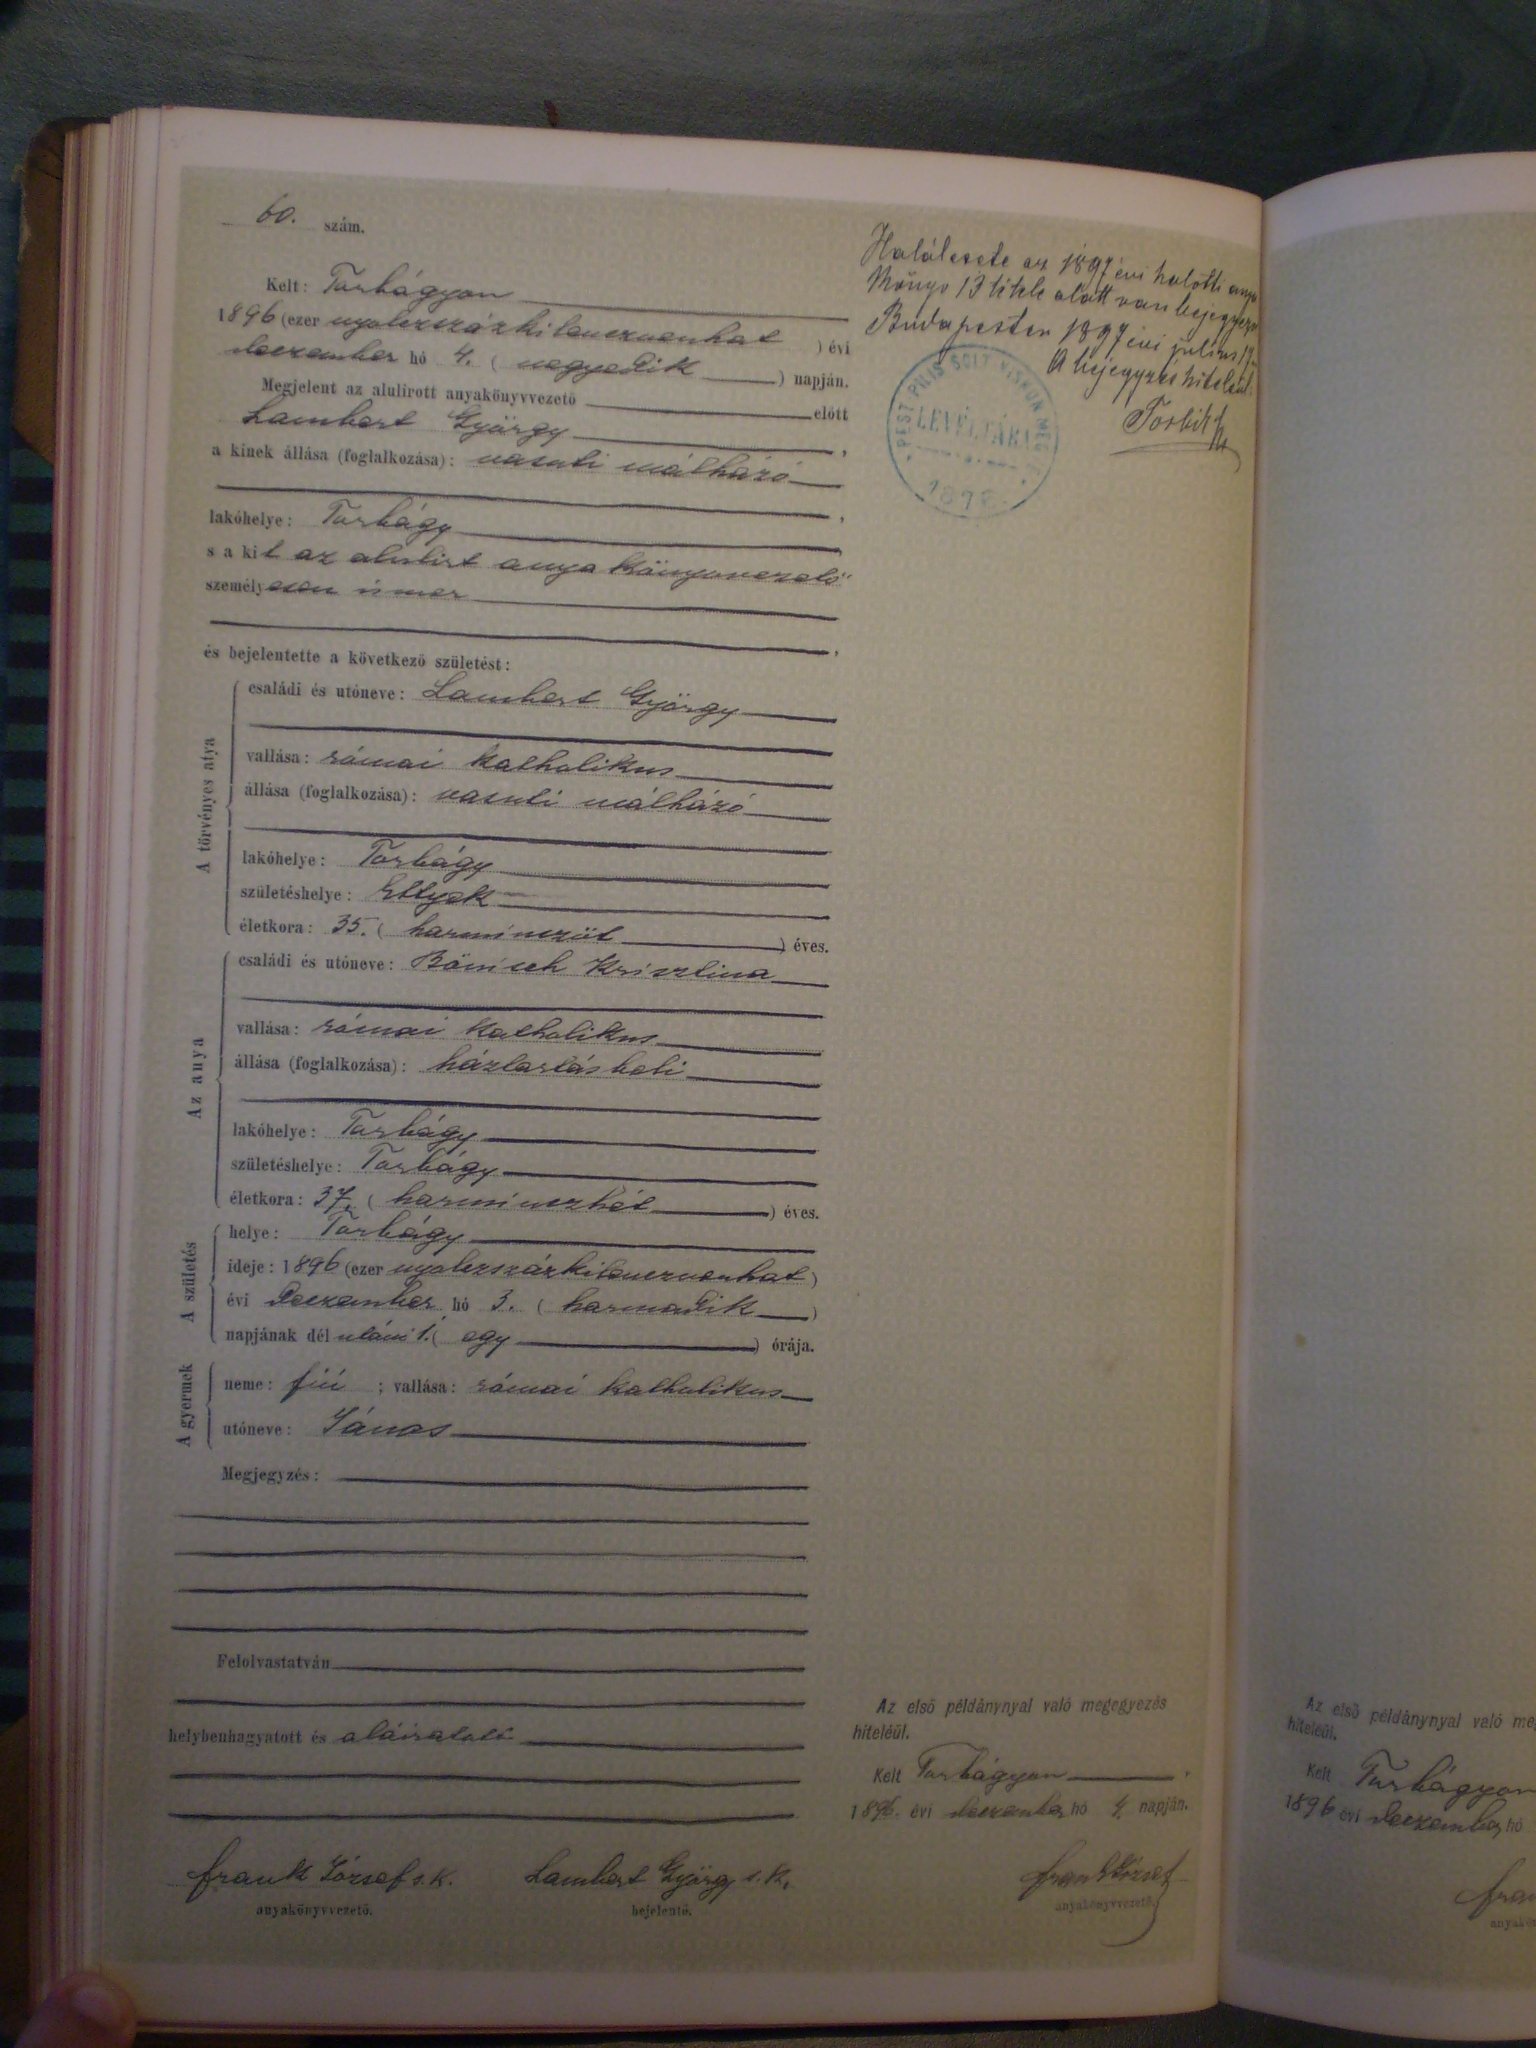 60. szám.
Kelt: Torbágyon
1896 (ezer nyolczszázkilenczvenhat ) évi
deczember hó 4. ( negyedik ) napján.
Megjelent az alulirott anyakönyvvezető előtt
Lambert György ,
a kinek állása (foglalkozása): vasuti málházó
,
lakóhelye: Torbágy
s a kit az alulirt anyakönyvvezető
személyesen ismer
,
és bejelentette a következő születést:
A törvényes atya
családi és utóneve: Lambert György
vallása: római katholikus
állása (foglalkozása): vasuti málházó
lakóhelye: Torbágy
születéshelye: Ettyek
életkora: 35. ( harminczöt ) éves.
Az anya
családi és utóneve: Bönisch Krisztina
vallása: római katholikus
állása (foglalkozása): háztartásbeli
lakóhelye: Torbágy
születéshelye: Torbágy
életkora: 37. ( harminczhét ) éves.
A születés
helye: Torbágy
ideje: 1896 (ezer nyolczszázkilenczvenhat )
évi deczember hó 3. ( harmadik )
napjának dél utáni 1. ( egy ) órája.
A gyermek
neme: fiú ; vallása: római katholikus
utóneve: János
Megjegyzés:
Felolvastatván
helybenhagyatott és aláiratott
Frank József s. k. Lambert György s. k.
anyakönyvvezető. bejelentő.
Halálesete az 1897 évi halotti anya
könyv 13 tétele alatt van bejegyezve
Budapesten 1897 évi julius
A bejegyzés hiteléül:
PEST PILIS SOLT KISKUN MEGYE
LEVÉLTÁRA
Az első példánynyal való megegyezés
hiteléül.
Kelt Torbágyon ,
1896. évi deczember hó 4. napján.
Frank József
anyakönyvvezető.
Az első példánynyal való me
hiteléül.
Kelt Torbágyon
1896 évi deczember hó
Fra
anyakö